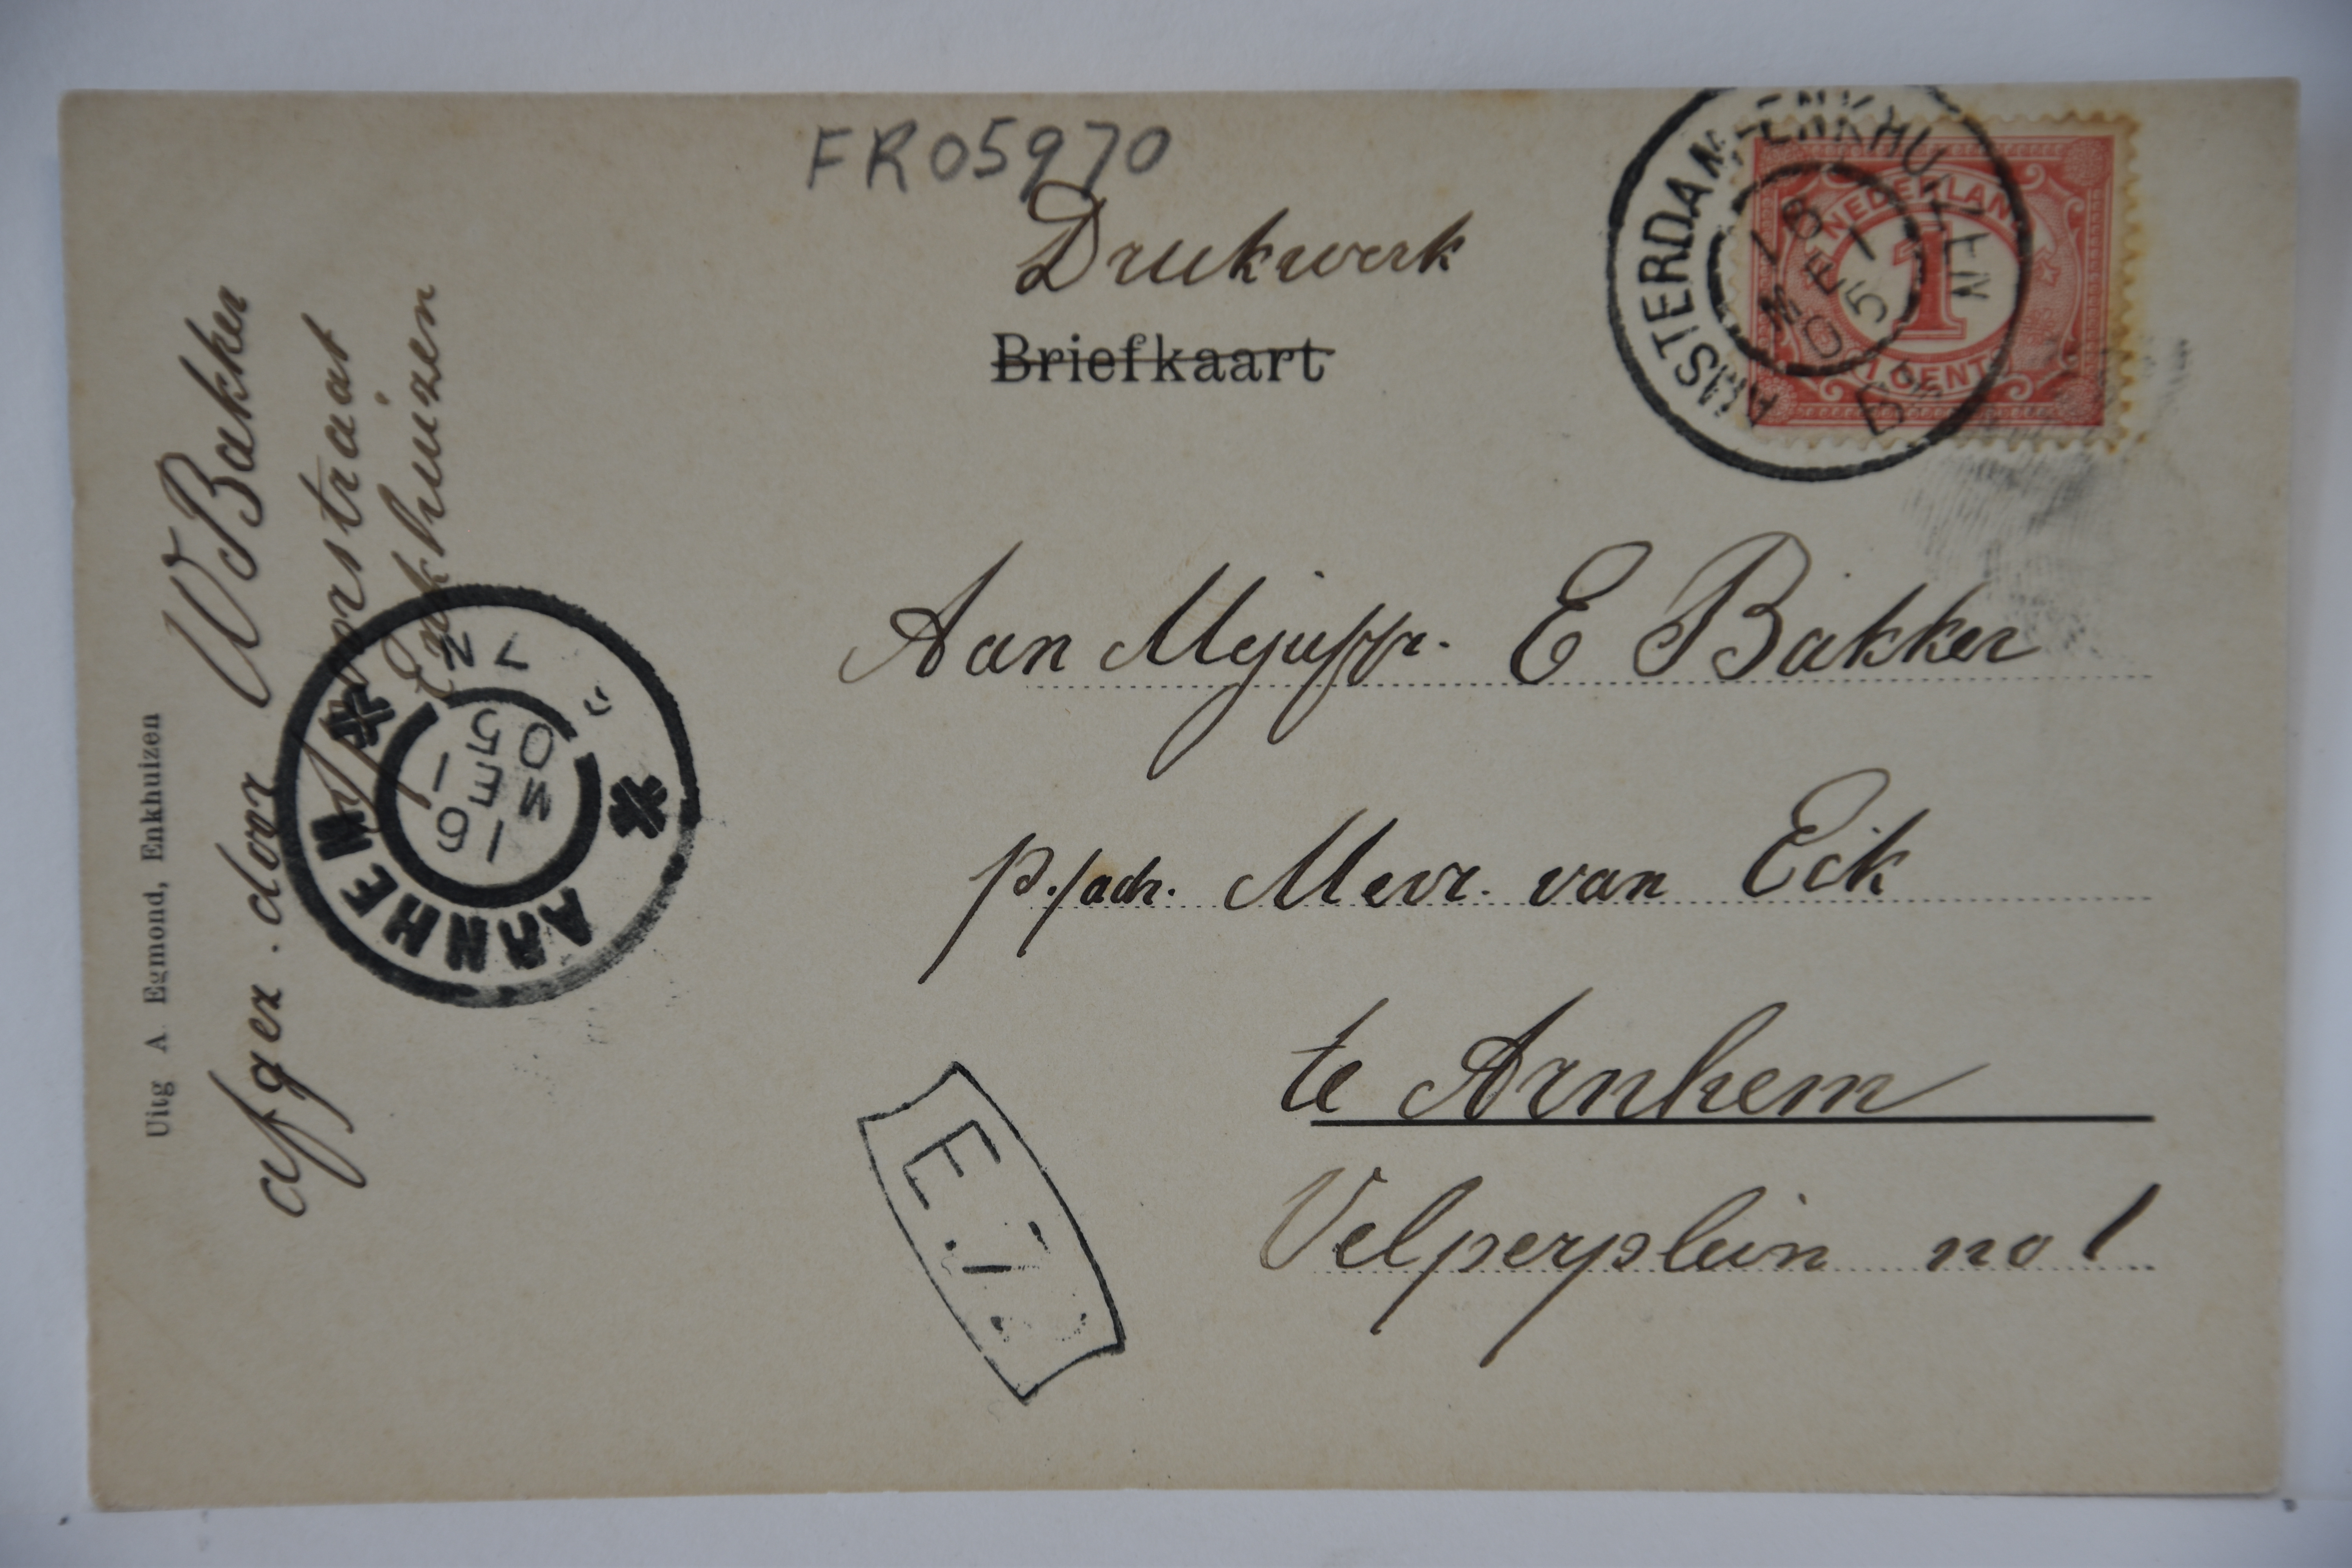 FR05970
Drukwerk
Briefkaart
AMSTERDAM-ENKHUIZEN
16 MEI 05
NEDERLAND
1
1 CENT
Aan Mejuffr. E Bakker
p/adr. Mevr. van Eck
te Arnhem
Velperplein no 1
afger. door W Bakker
Spoorstraat
Enkhuizen
Uitg A. Egmond, Enkhuizen
ARNHEM
7 N
16 MEI 05